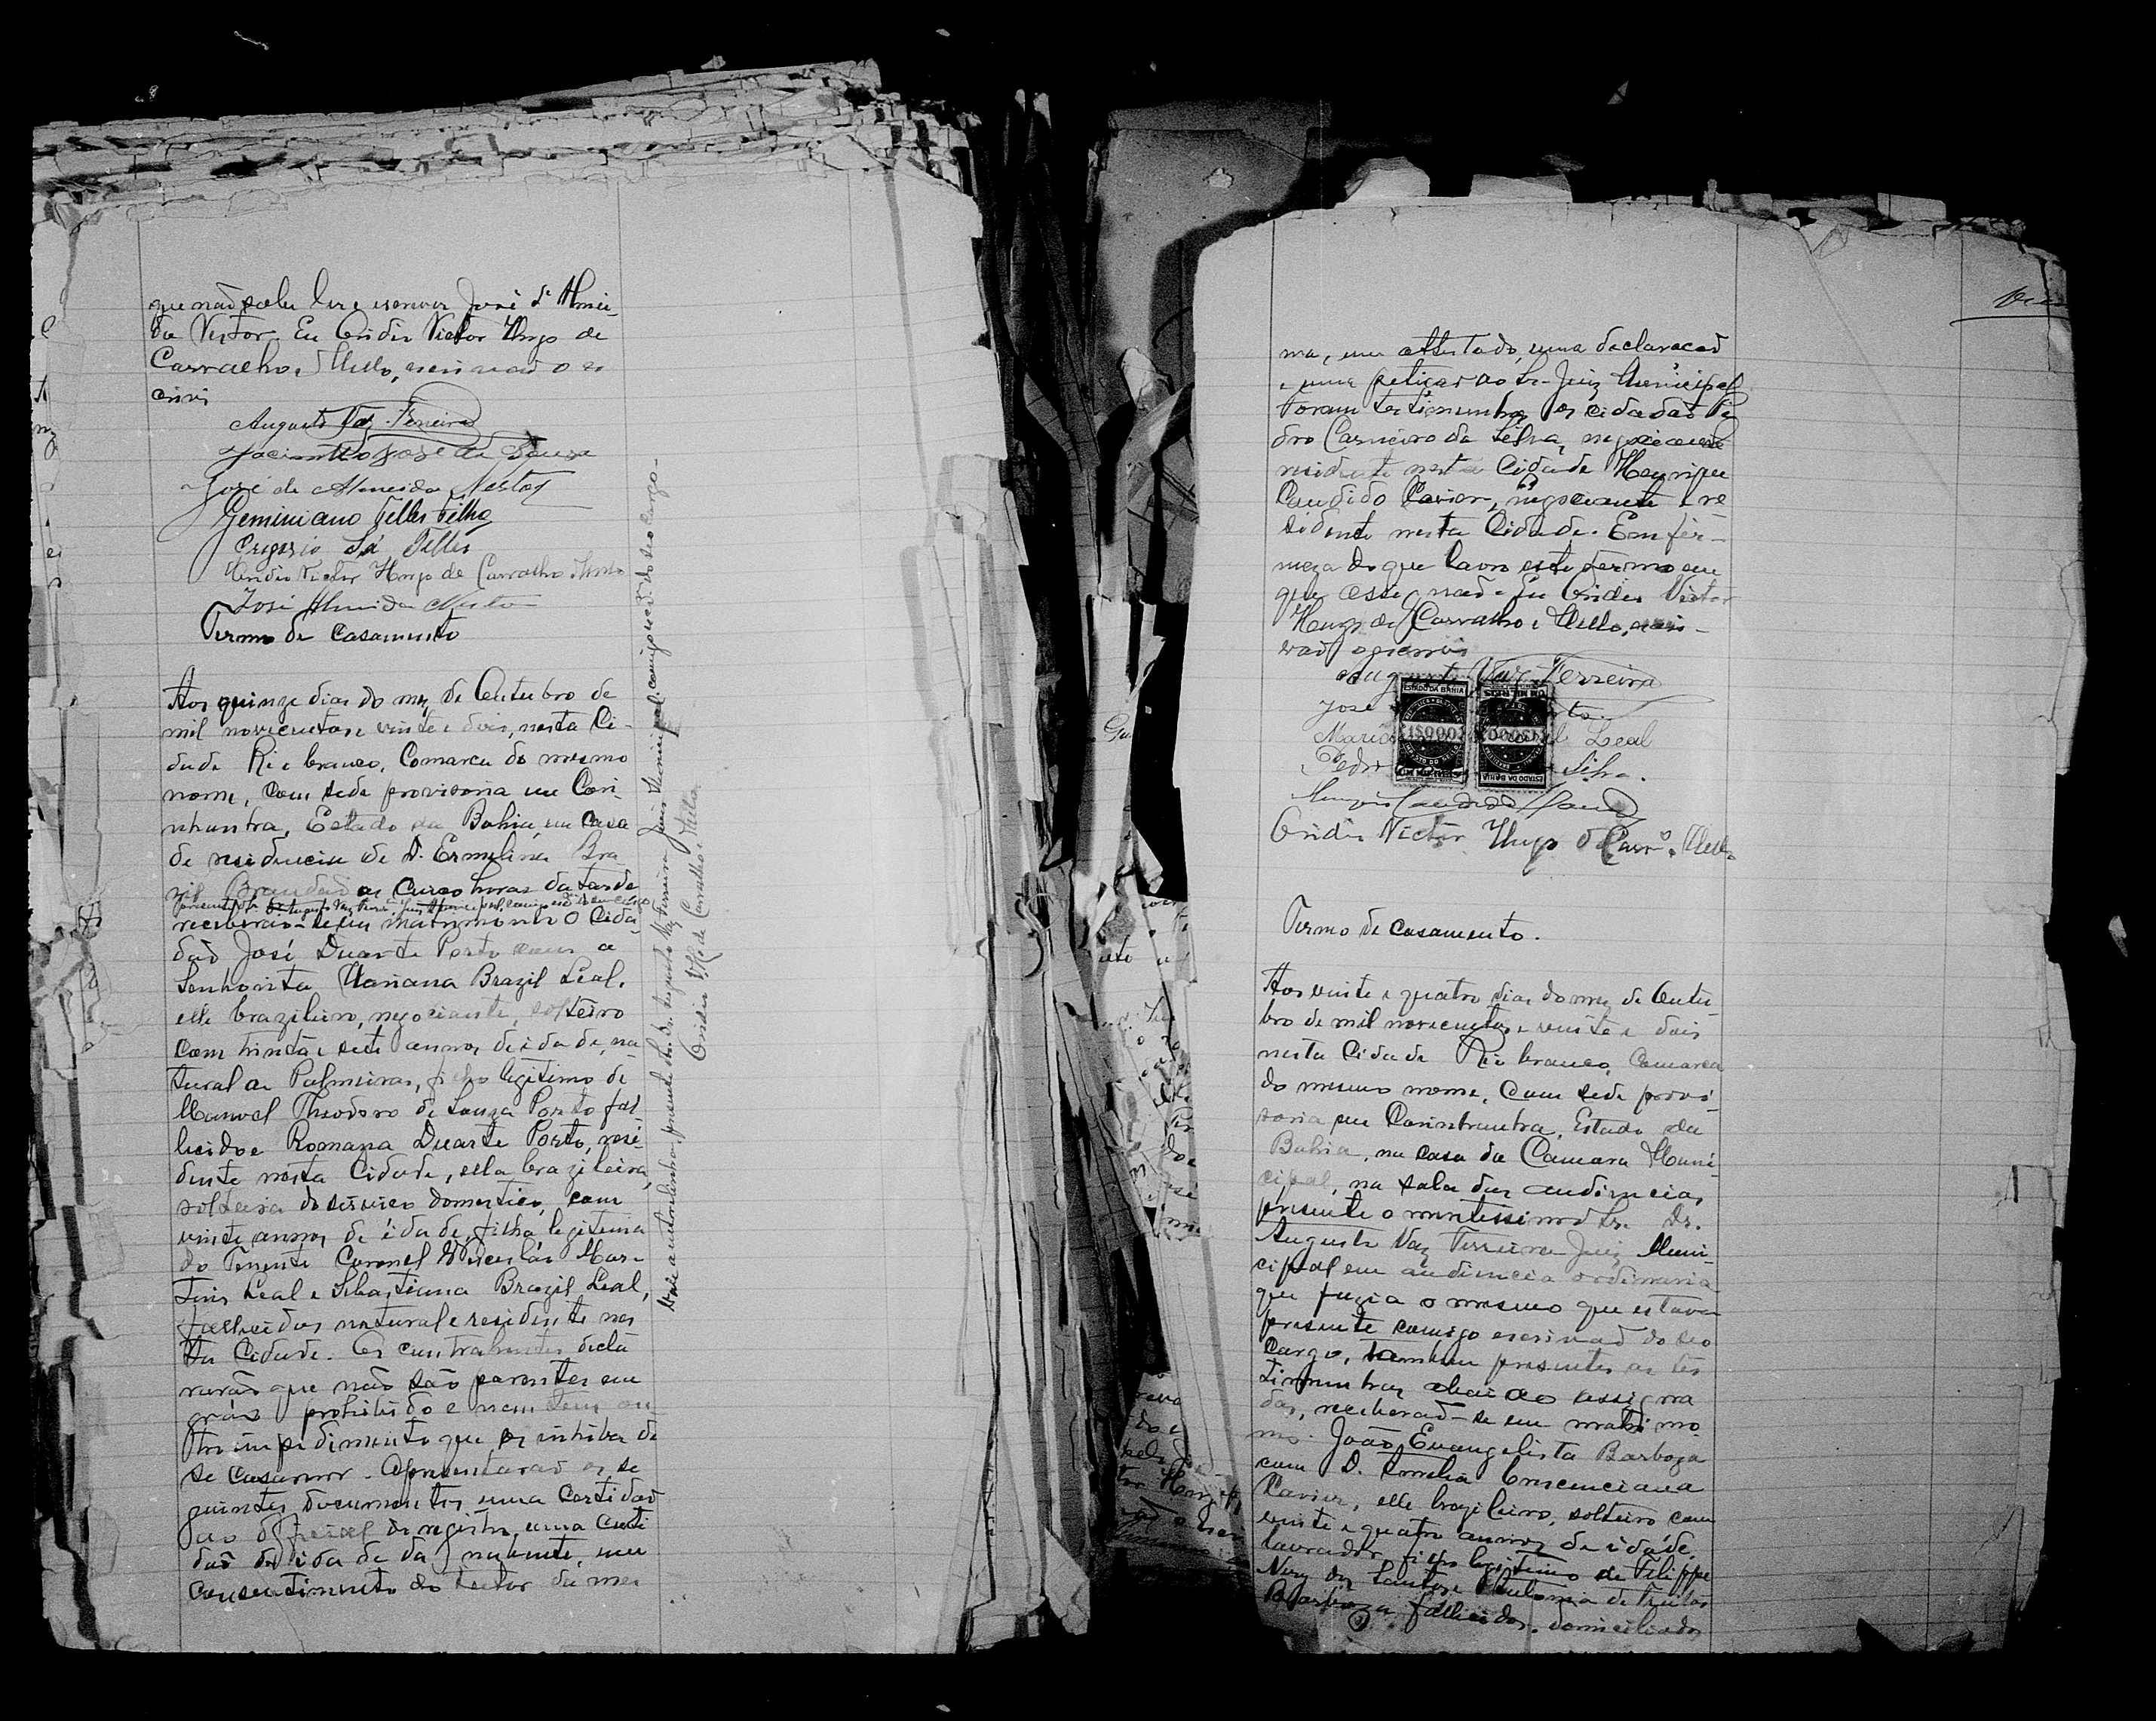 que não sabe ler e escrever José de Almei-
da Nestor. Eu Ovidio Victor Hugo de
Carvalho e Mello, escrivão o es
crivi
Augusto Vaz Ferreira
Jacintho José de Souza
José de Almeida Nestor
Geminiano Telles Filho
Sá Telles
Ovidio Victor Hugo de Carvalho e Mello
José Almeida Nestor
Termo de Casamento
Aos quinze dias do mez de Outubro de
mil novecentos e vinte e dois, nesta Ci-
dade Rio branco, Comarca do mesmo
nome, com sede provisoria em Cari-
nhanha, Estado da Bahia, em Casa
de residencia de D. Ermelina Bra-
zil Brandão as cinco horas da tarde
receberão-se em matrimonio O Cida-
dão José Duarte Porto com a
Senhorita Mariana Brazil Leal,
elle brazileiro, negociante, solteiro
com trinta e sete annos de idade, na-
tural de Palmeiras, filho legitimo de
Manoel Theodoro de Souza Porto fal-
lecido e Romana Duarte Porto, resi-
dente nesta Cidade, ella brazileira,
solteira do serviço domestico, com
vinte annos de idade, filha legitima
do Tenente Coronel Mar-
tins Leal e Sebastiana Brazil Leal,
fallecidos natural e residente nes
ta Cidade. Os contrahentes decla
rarão que não são parentes em
gráo prohibido e nem tem ou-
tro impedimento que os inhiba de
se casarem. Apresentarão os se
guintes documentos uma Certidão
do official do registro, uma Certi
dão de idade da nubente, um
consentimento do tutor da mes
Vale a entrelinha: presente Dr. Augusto Vaz Ferreira Juiz Municipal, comigo escrivão do seo cargo.
Ovidio V. H. de Carvalho e Mello
ma, um Attestado, uma declaração
e uma petição ao Sr. Juiz Municipal
Foram testimunhas os cidadãos Pe
dro Carneiro da Silva, negociante
residente nesta Cidade Henrique
Candido Xavier, negociante e re
sidente nesta Cidade. Em fir-
meza do que lavro este termo em
que assignão. Eu Ovidio Victor
Hugo de Carvalho e Mello, escri-
vão o escrevi
Augusto Vaz Ferreira
José
Leal
Pedro Silva.
ESTADO DA BAHIA
1$000
UM MIL REIS
1$000
ESTADO DA BAHIA
Candido
Ovidio Victor Hugo de Carvo. e Mello
Termo de Casamento.
Aos vinte e quatro dias do mez de Outu-
bro de mil novecentos e vinte e dois
nesta Cidade Rio branco, Comarca
do mesmo nome, com sede provi-
soria em Carinhanha, Estado da
Bahia, na casa da Camara Muni-
cipal, na sala das audiencias
presente o Sr. Dr.
Augusto Vaz Ferreira Juiz Muni-
cipal em audiencia ordinaria
que fazia o mesmo que estava
presente comigo escrivão do seo
Cargo, tambem presentes as tes
timunhas abaixo assigna
das, receberão-se em matrimo
nio João Evangelista Barboza
com D. Emilia Crescenciana
Xavier, elle brazileiro, solteiro com
vinte e quatro annos de idade,
lavrador, filho legitimo de Felippe
Nery dos Santos e Antonia de
Barboza fallecidos, domiciliados